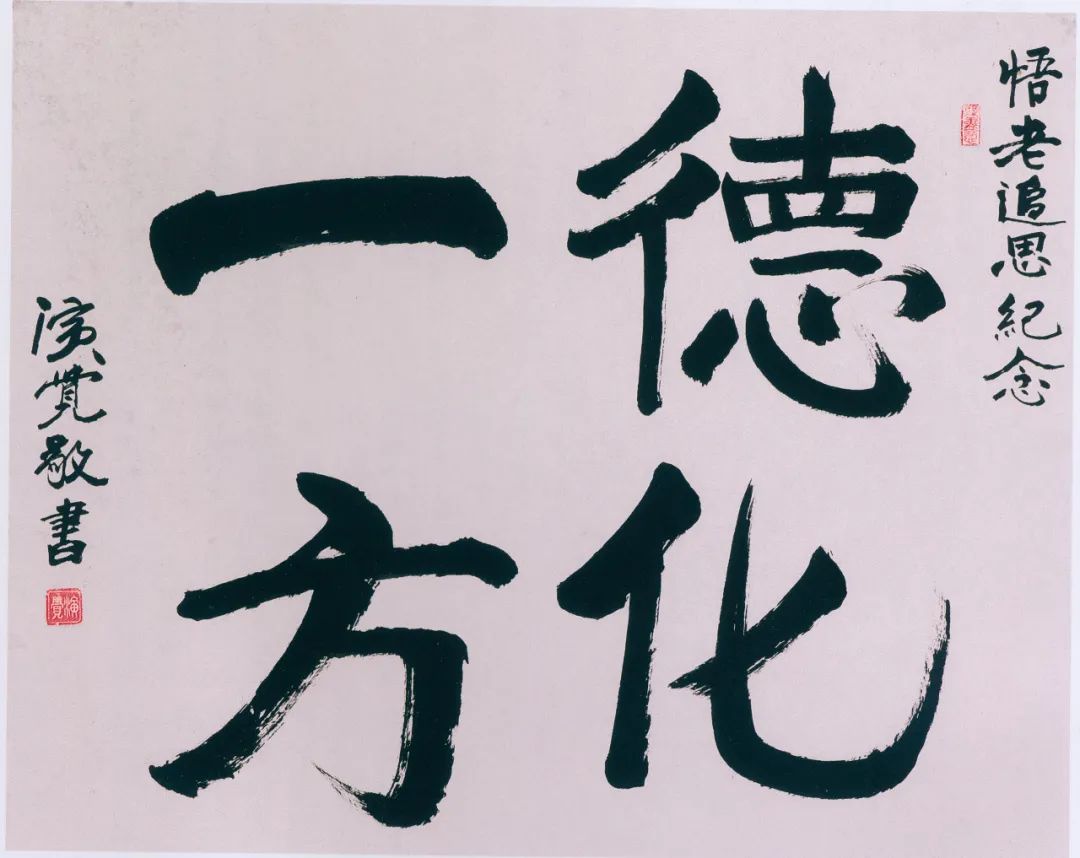 悟老追思紀念
德化
一方
演覺敬書